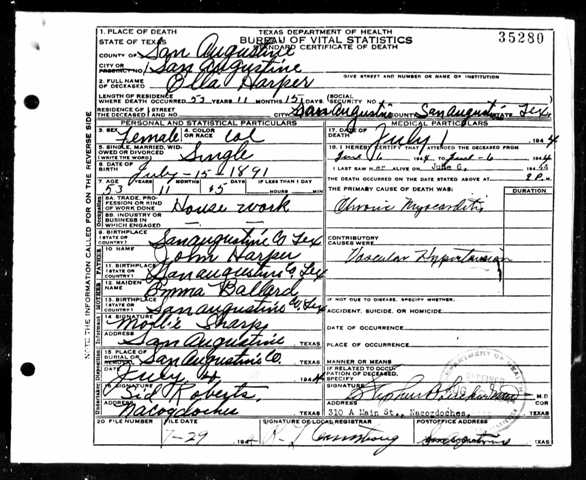 TEXAS DEPARTMENT OF HEALTH
BUREAU OF VITAL STATISTICS
STANDARD CERTIFICATE OF DEATH
35280
1. PLACE OF DEATH
STATE OF TEXAS
COUNTY OF San Augustine
CITY OR PRECINCT NO. San Augustine
GIVE STREET AND NUMBER OR NAME OF INSTITUTION
2. FULL NAME OF DECEASED Olla Harper
LENGTH OF RESIDENCE WHERE DEATH OCCURRED 53 YEARS 11 MONTHS 15 DAYS
SOCIAL SECURITY NO.
RESIDENCE OF THE DECEASED STREET
CITY San Augustine COUNTY San Augustine STATE Tex
PERSONAL AND STATISTICAL PARTICULARS
MEDICAL PARTICULARS
3. SEX Female 4. COLOR OR RACE Col
17. DATE OF DEATH July 1 1944
5. SINGLE, MARRIED, WIDOWED OR DIVORCED (WRITE THE WORD) Single
18. I HEREBY CERTIFY THAT I ATTENDED THE DECEASED FROM
June 6 1944 TO June 6 1944
6. DATE OF BIRTH July-15-1891
I LAST SAW ALIVE ON June 6, 1944
7. AGE YEARS MONTHS DAYS IF LESS THAN 1 DAY
53 11 15 HOURS MIN
THE DEATH OCCURRED ON THE DATE STATED ABOVE AT 8 P.M.
8A. TRADE, PROFESSION OR KIND OF WORK DONE House work
THE PRIMARY CAUSE OF DEATH WAS:
DURATION
Chronic Myocarditis
8B. INDUSTRY OR BUSINESS IN WHICH ENGAGED
9. BIRTHPLACE (STATE OR COUNTRY) San Augustine Co Tex
CONTRIBUTORY CAUSES WERE:
Vascular Hypertension
10. NAME John Harper
11. BIRTHPLACE (STATE OR COUNTRY) San Augustine Co Tex
12. MAIDEN NAME Emma Ballard
IF NOT DUE TO DISEASE, SPECIFY WHETHER:
13. BIRTHPLACE (STATE OR COUNTRY) San Augustine Co, Tex
ACCIDENT, SUICIDE, OR HOMICIDE
14. SIGNATURE Mollie Sharp
DATE OF OCCURRENCE
ADDRESS San Augustine TEXAS
PLACE OF OCCURRENCE
15. PLACE OF BURIAL OR REMOVAL San Augustine Co. TEXAS
MANNER OR MEANS
DATE July 1944
IF RELATED TO OCCUPATION OF DECEASED, SPECIFY
16. SIGNATURE Sid Roberts,
SIGNATURE M.D.
ADDRESS Nacogdoches TEXAS
ADDRESS
310 A Main St., Nacogdoches, TEXAS
20 FILE NUMBER FILE DATE SIGNATURE OF LOCAL REGISTRAR POSTOFFICE ADDRESS
7-29 1944 Armstrong San Augustine TEXAS
NOTE THE INFORMATION CALLED FOR ON THE REVERSE SIDE